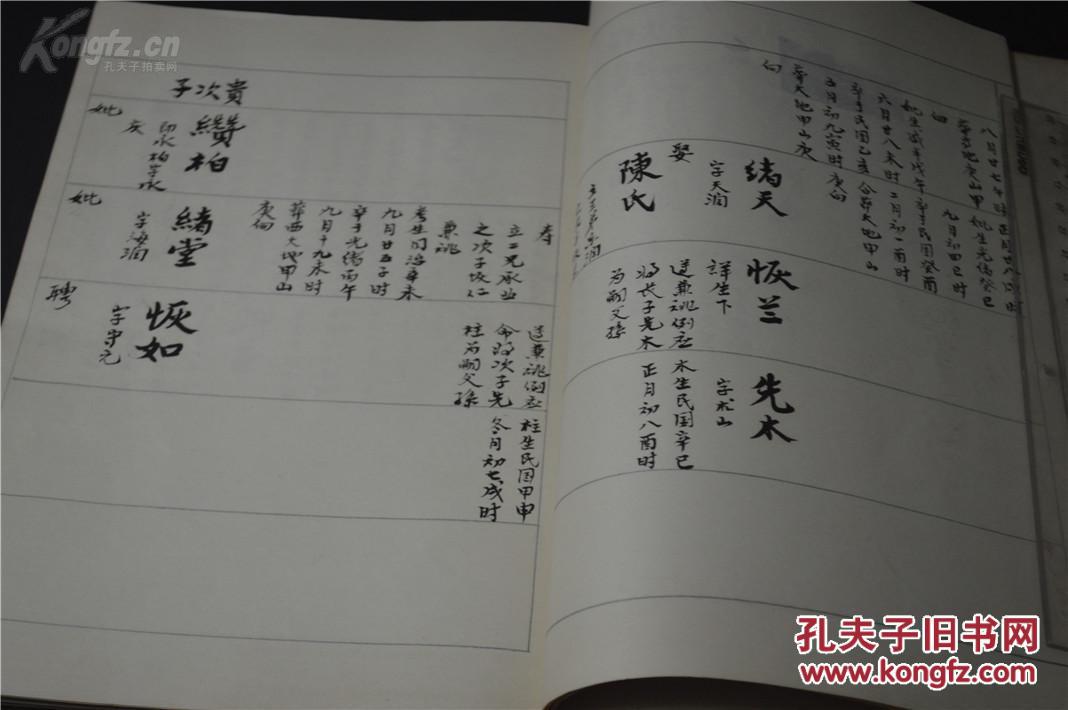 八月廿七午时
葬大地庚山甲
向
妣生咸丰戊午
六月廿八未时
卒于民国乙亥
五月初九寅时
葬大地甲山庚
向
妣生光绪癸巳
九月初四巳时
卒于民国癸酉
二月初一酉时
合葬大地甲山
庚向
绪天
字天润
娶
陳氏
恢兰
詳生下
遵兼祧例应
将长子先木
为嗣父孫
先木
字木山
木生民国辛巳
正月初八酉时
寿
立二兄承业
之次子恢仁
兼祧
考生同治辛未
九月廿五子时
卒于光绪丙午
九月十九未时
葬西大地甲山
庚向
遵兼祧例应
命将次子先
柱为嗣父孫
柱生民国甲申
冬月初七戌时
貴次子
纘柏
妣
緒堂
字海润
妣
恢如
字守元
聘
Kongfz.cn
孔夫子拍卖网
孔夫子旧书网
www.kongfz.com